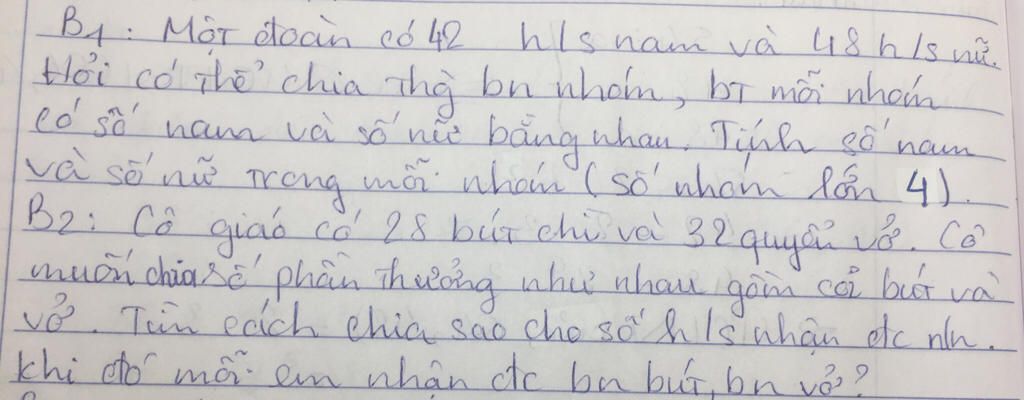 B1: Một đoàn có 42 h/s nam và 48 h/s nữ.
Hỏi có thể chia thg bn nhóm, bt mỗi nhóm
có số nam và số nữ bằng nhau. Tính số nam
và số nữ trong mỗi nhóm (số nhóm lớn 4).
B2: Cô giáo có 28 bút chì và 32 quyển vở. Cô
muốn chia số phần thưởng như nhau gồm cả bút và
vở. Tìm cách chia sao cho số h/s nhận đc nln.
khi đó mỗi em nhận đc bn bút, bn vở?